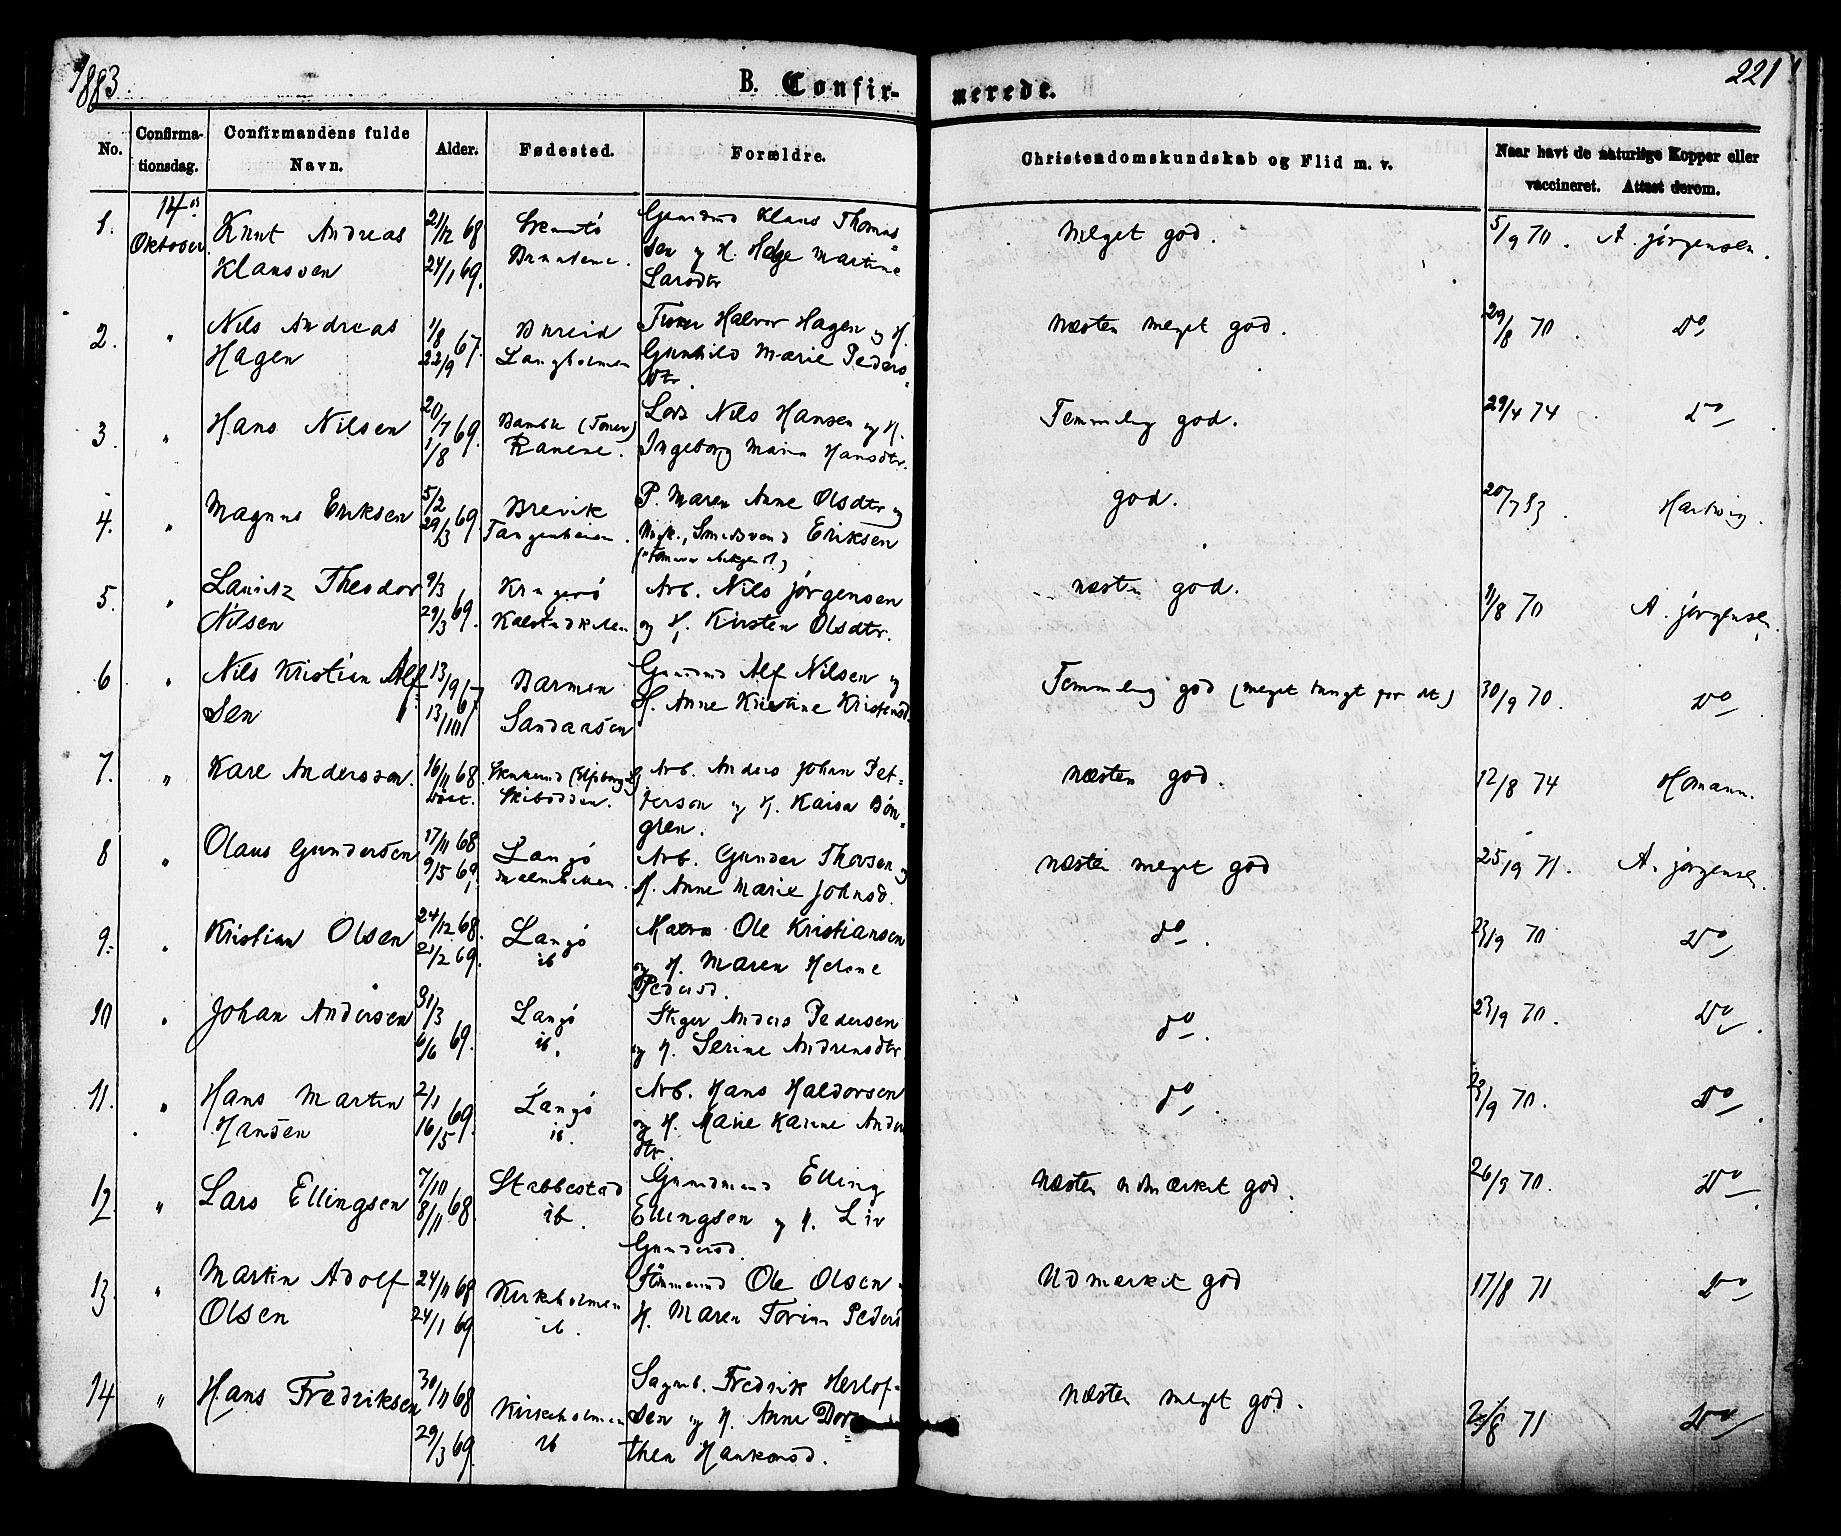 1883.
B. Confir-
merede.
221
No.
Confirma-
tionsdag.
Confirmandens fulde
Navn.
Alder.
Fødested.
Forældre.
Christendomskundskab og Flid m. v.
Naar havt de naturlige Kopper eller
vaccineret. Attest derom.
1. 14de Oktober Knut Andreas 21/12 68 Gumund Klaus Thomas= Meget god. 5/9 70. A. Jørgensen.
Klaussen 24/1 69. sen og H. Helge Martine
Larsdtr
2. " Nils Andreas 1/8 67. Halvor Hagen og H. Næsten meget god. 29/8 70. Do
Hagen 22/9 Langholmen Gunhild Marie Peders=
dtr.
3. " Hans Nilsen 20/7 69. Bamble Lods Nils Hansen og H. Temmelig god. 29/4 74 Do
1/8 Ranene. Ingeborg Maren Hansdtr.
4. " Magnus Eriksen 5/2 69 Brevik P. Maren Anne Olsdtr og god. 20/7 83. Hartwig.
29/3 Tangenheien. Eriksen
5. " Lauritz Theodor 9/3 69. Kragerø Arb. Nils Jørgensen næsten god. 11/8 70 A. Jørgensen.
Nilsen 29/3 Kalstadkilen og H. Kirsten Olsdtr.
6 " Nils Kristian Alf 13/9 67 Barmen Alf Nilsen og Temmelig god (meget tungt for det) 30/9 70. Do
sen 13/10 Sandaasen H. Anne Kristine Kristensd.
7. " Kare Andersson. 16/11 68. Arb. Anders Johan Pet= næsten god. 12/8 74 Homann.
Døbt. Skibodden. terson og H. Kaisa
gren.
8 " Olaus Gundersen 17/11 68 Langø Arb. Gunder Thorsen og næsten meget god 25/9 71. A. Jørgensen.
9/5 69. H. Anne Marie Johnsd.
9. " Kristian Olsen 24/12 68. Langø Matros Ole Kristiansen do. 23/9 70 Do
21/2 69. ib og H. Maren Helene
Pedersd.
10 " Johan Andersen 31/3 69. Langø Anders Pedersen do. 23/9 70. Do
6/6 ib. og H. Serine Andreasdtr
11. " Hans Martin 2/1 69. Langø Arb. Hans Haldorsen do. 23/9 70. Do
Hansen 16/5 ib. og H. Marie Karine Anders
dtr.
12. " Lars Ellingsen 7/10 68. Stabbestad Gumund Elling Næsten udmærket god. 26/9 70. Do
8/11 ib. Ellingsen og H. Liv
Gundersd.
13. " Martin Adolf 24/11 68 Kirkeholmen Tømmermd Ole Olsen Udmærket god 17/8 71 Do
Olsen 24/1 69 ib. H. Maren Torine Peders
14 " Hans Fredriksen 30/11 68 Kirkeholmen Sagmb. Fredrik Herlof= Næsten meget god. 23/8 71 Do
29/3 69. ib sen og H. Anne Doro=
thea Haakonsd.